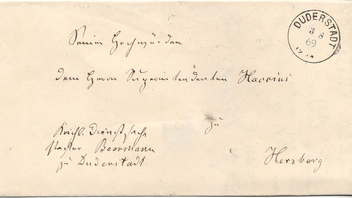 DUDERSTADT
3 8
69
Seiner Hochwürden
dem Herrn Superintendenten Harrini
zu
Kirchl. Dienstsache
Pastor Boormann
zu Duderstadt
Herzberg